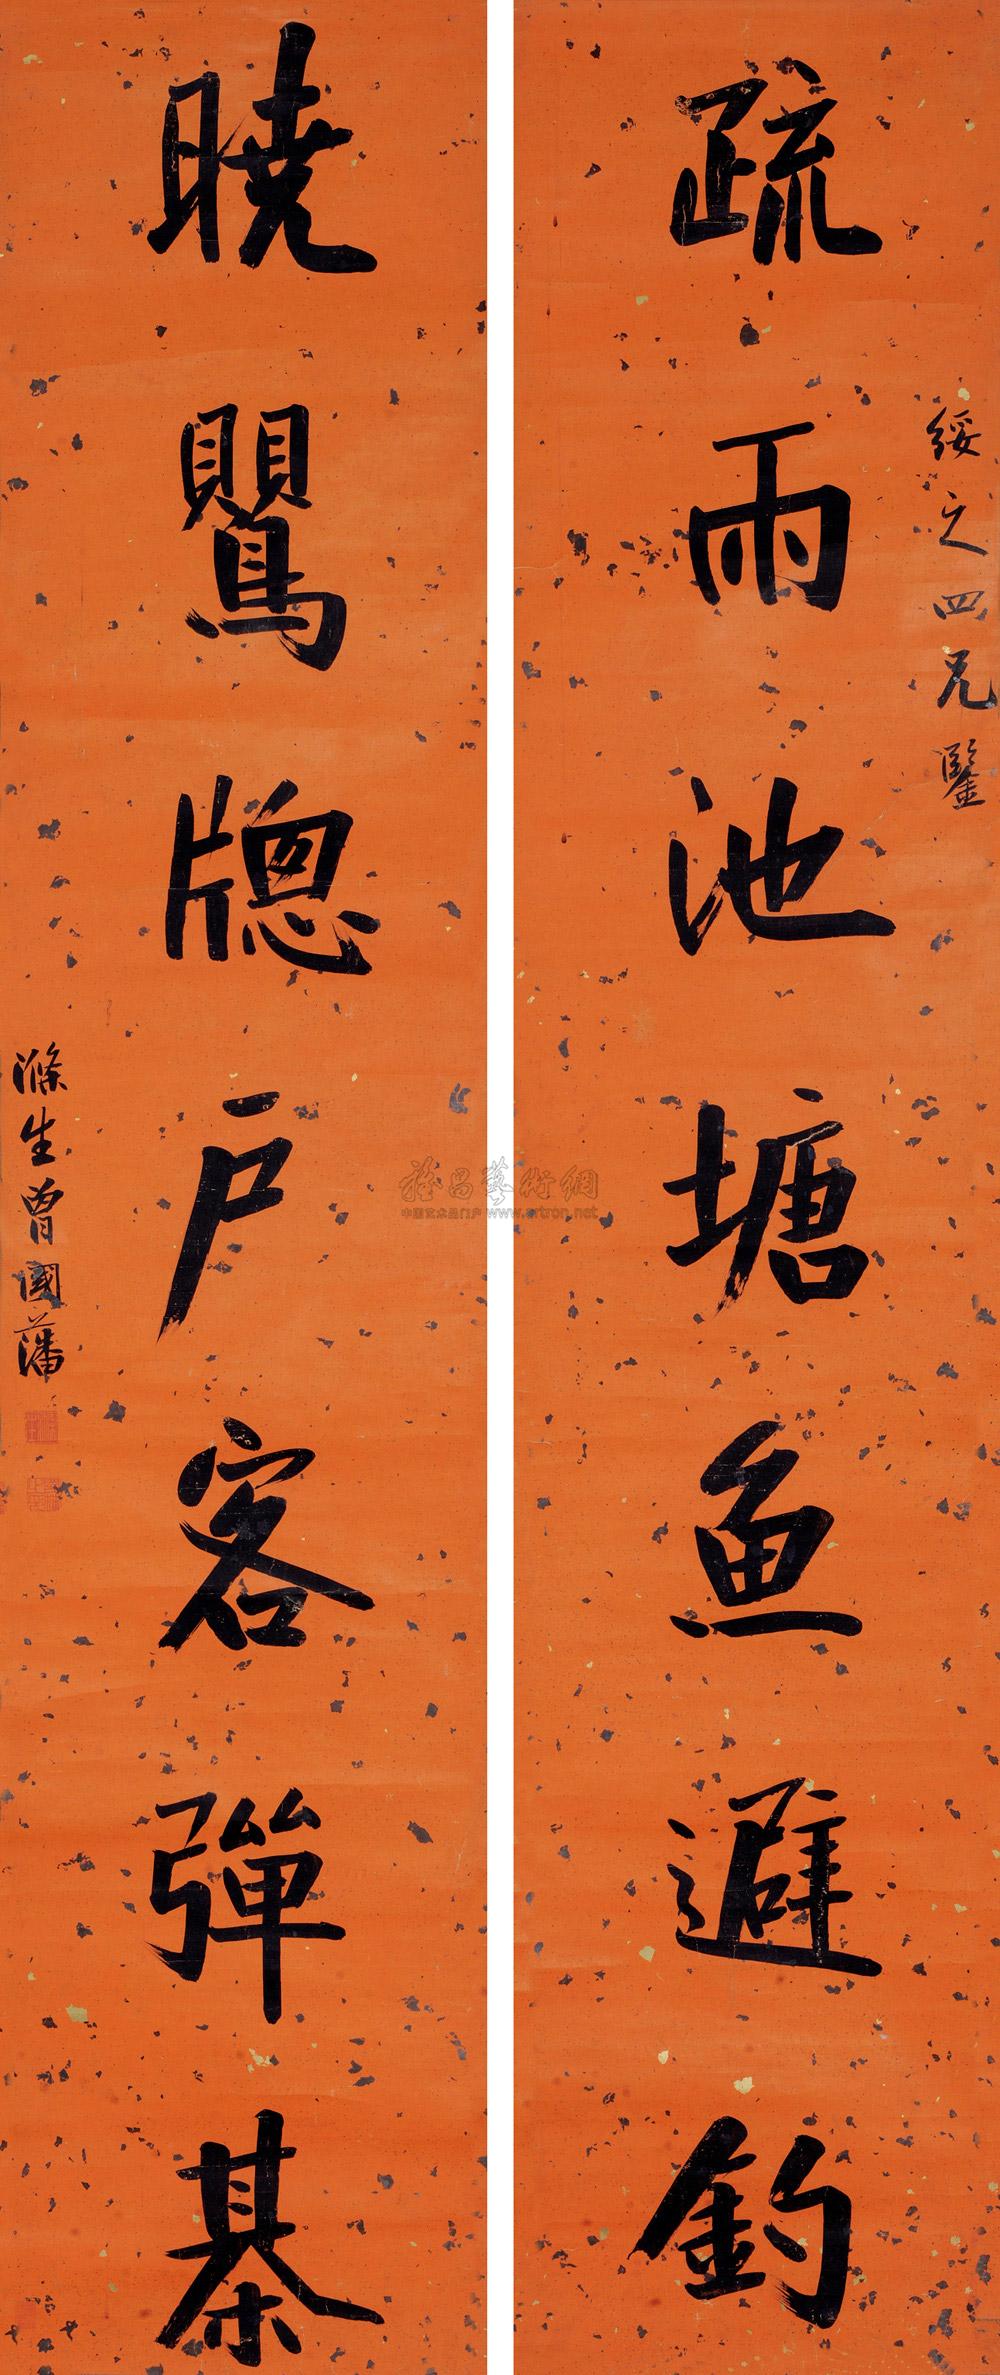 疏雨池塘魚避釣
綏之四兄鑒
曉鸎牕戶客彈棊
滌生曾國藩
雅昌藝術網
中国艺术品门户 www.artron.net